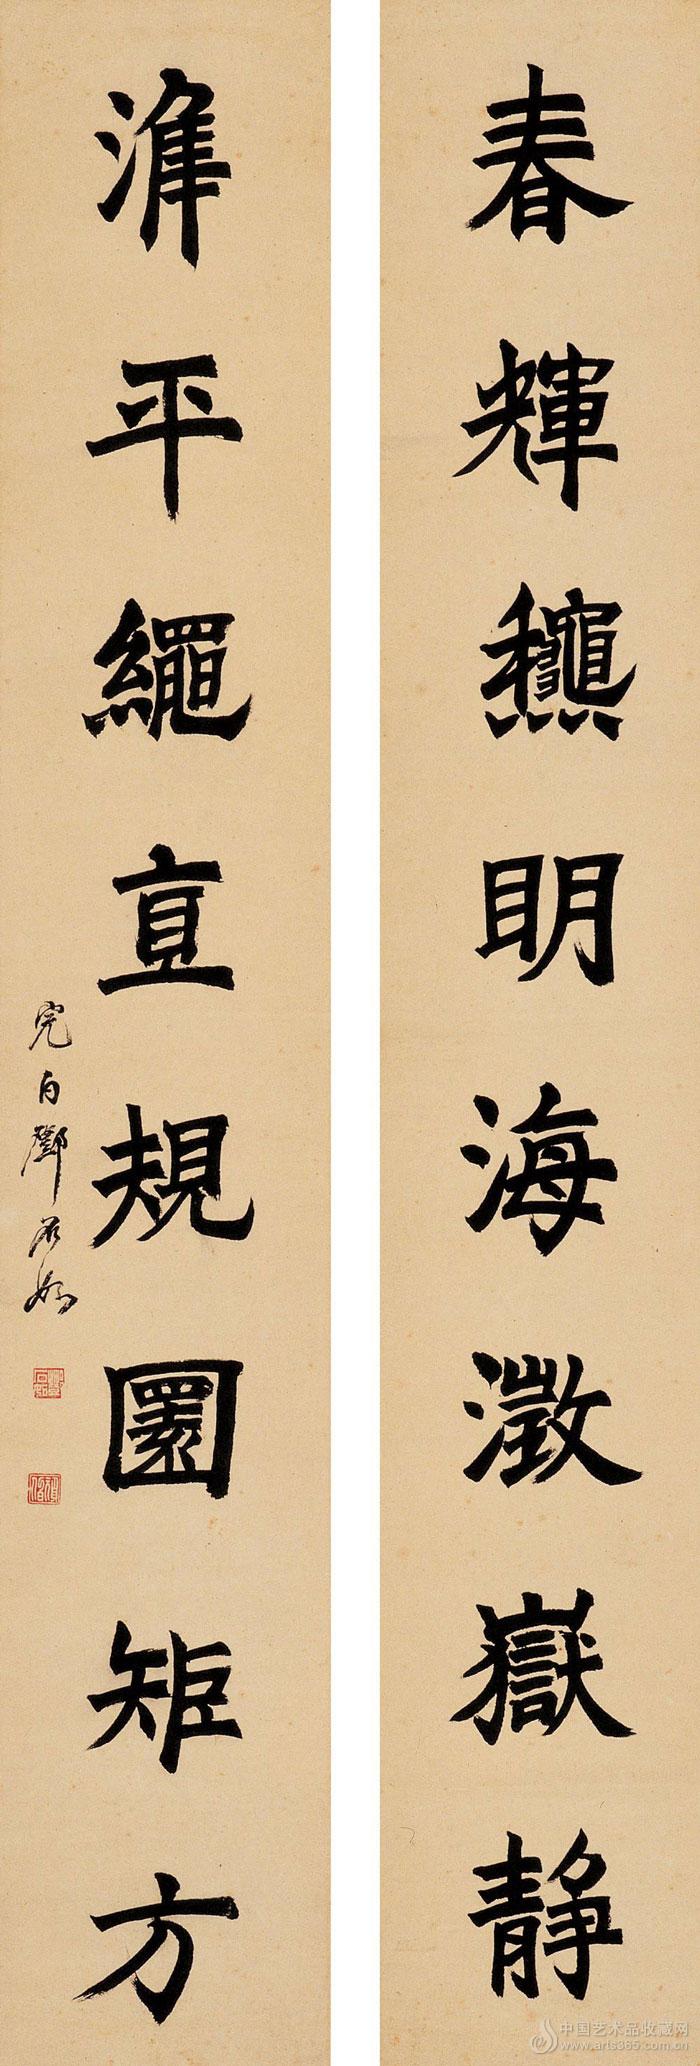 春輝龝眀海澂嶽静
準平繩直規圜矩方
完白鄧石如
中国艺术品收藏网
www.arts365.com.cn